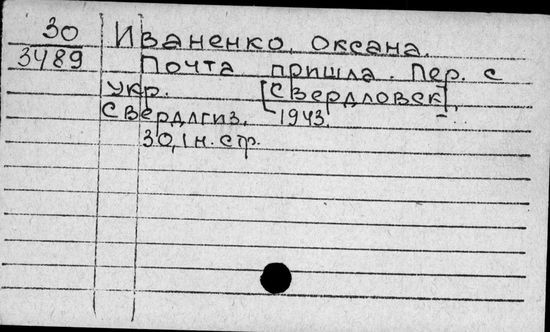 30
3489
Иваненко, Оксана.
Почта пришла. Пер. с
укр. [Свердловск],
Свердлгиз, 1943.
30,1 н. стр.